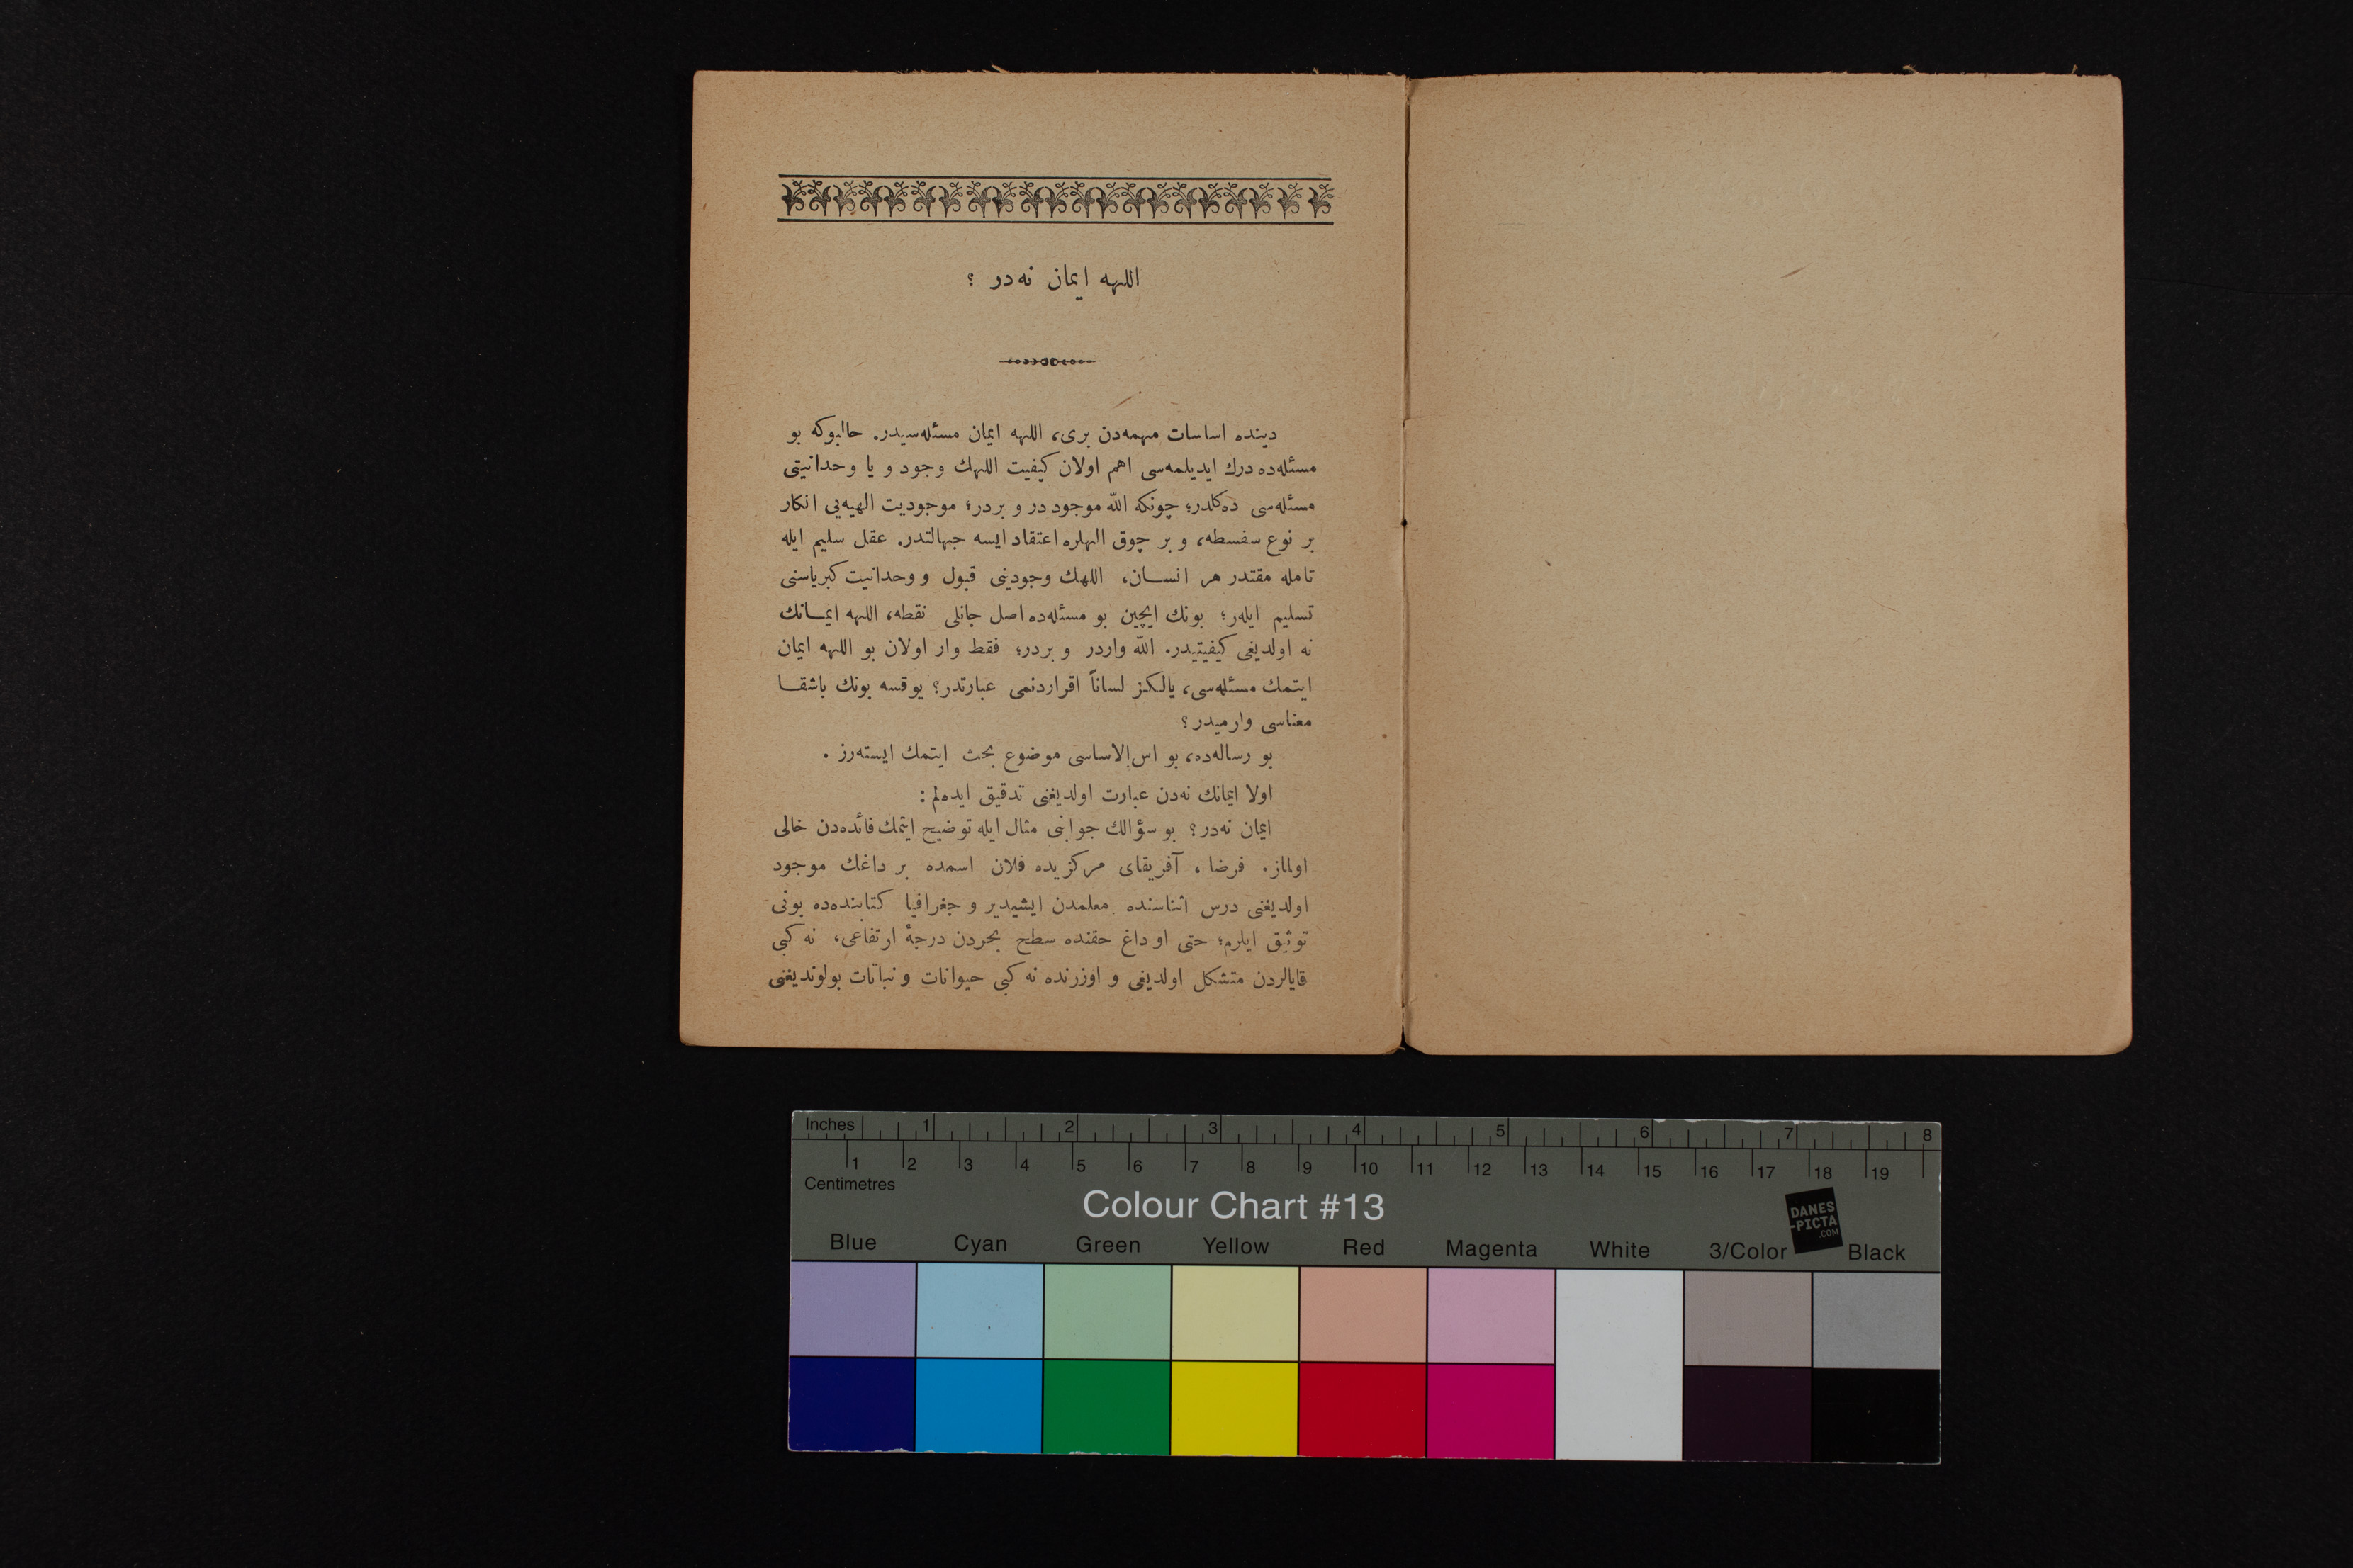 اللهه ایمان نه‌در ؟
دینده اساسات مهمه‌دن بری، اللهه ایمان مسئله‌سیدر. حالبوکه بو
مسئله‌ده درك ایدیلمه‌سی اهم اولان کیفیت اللهك وجود و یا وحدانیتی
مسئله‌سی ده‌کلدر؛ چونکه اللّه موجوددر و بردر؛ موجودیت الهیه‌یی انکار
بر نوع سفسطه، و بر چوق الهلره اعتقاد ایسه جهالتدر. عقل سلیم ایله
تامله مقتدر هر انسـان، اللهك وجودینی قبول و وحدانیت کبریاسنی
تسلیم ایله‌ر؛ بونك ایچین بو مسئله‌ده اصل جانلی نقطه، اللهه ایمـانك
نه اولدیغی کیفیتیدر. اللّه واردر و بردر؛ فقط وار اولان بو اللهه ایمان
ایتمك مسئله‌سی، یالکز لساناً اقراردنمی عبارتدر؟ یوقسه بونك باشقـا
معناسی وارمیدر؟
بو رساله‌ده، بو اس‌الاساسی موضوع بحث ایتمك ایسته‌رز .
اولا ایمانك نه‌دن عبارت اولدیغنی تدقیق ایده‌لم :
ایمان نه‌در؟ بو سؤالك جوابنی مثال ایله توضیح ایتمك فائده‌دن خالی
اولماز. فرضا ، آفریقای مرکزیده فلان اسمده بر داغك موجود
اولدیغنی درس اثناسنده معلمدن ایشیدیر و جغرافیا کتابنده‌ده بونی
توثیق ایلرم؛ حتی او داغ حقنده سطح بحردن درجۀ ارتفاعی، نه کبی
قایالردن متشکل اولدیغی و اوزرنده نه کبی حیوانات و نباتات بولوندیغنی
Inches 1 2 3 4 5 6 7 8
1 2 3 4 5 6 7 8 9 10 11 12 13 14 15 16 17 18 19
Centimetres
Colour Chart #13
DANES
-PICTA
.COM
Blue Cyan Green Yellow Red Magenta White 3/Color Black